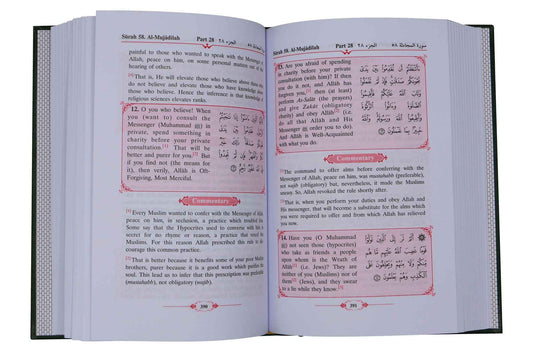 Sûrah 58. Al-Mujâdilah Part 28 الجزء ٢٨ سورة المجادلة ٥٨
painful to those who wanted to speak with the Messenger of
Allah, peace on him, on some personal matter out of the
hearing of others.
That is, He will elevate those who believe above those who
do not believe and elevate those who have knowledge above
those who believe. Hence the inference is that knowledge of
religious sciences elevates ranks.
12. O you who believe! When
you (want to) consult the
Messenger (Muhammad ﷺ) in
private, spend something in
charity before your private
consultation.[1] That will be
better and purer for you.[2] But
if you find not (the means for
it), then verily, Allah is Oft-
Forgiving, Most Merciful.
Commentary
[1] Every Muslim wanted to confer with the Messenger of Allah,
peace on him, in seclusion, a practice which troubled him.
Some say that the Hypocrites used to converse with him in
secret for no rhyme or reason, a practice that troubled
Muslims. For this reason Allah prescribed this rule to dis-
courage this common practice.
[2] That is better because it benefits some of your poor Muslim
brothers, purer because it is a good work which purifies the
soul. This lead us to infer that this prescription was preferable
(mustahabb), not obligatory (wajib).
390
Sûrah 58. Al-Mujâdilah Part 28 الجزء ٢٨ سورة المجادلة ٥٨
13. Are you afraid of spending
in charity before your private
consultation (with him)? If then
you do it not, and Allah has
forgiven you,[1] then (at least)
perform As-Salât (the prayers)
and give Zakât (obligatory
charity) and obey Allah[2] (i.e.
do all that Allah and His
Messenger ﷺ order you to do).
And Allah is Well-Acquainted
with what you do.
Commentary
[1] The command to offer alms before conferring with the
Messenger of Allah, peace on him, was mustahabb (preferable),
not wajib (obligatory) but, nevertheless, it made the Muslims
uneasy. So, Allah revoked the rule shortly after.
[2] That is, when you perform your duties and obey Allah and
His messenger, that will become a substitute for the alms which
you were required to offer and from which Allah has relieved
you now.
14. Have you (O Muhammad
ﷺ) not seen those (hypocrites)
who take as friends a people
upon whom is the Wrath of
Allah[1] (i.e. Jews)? They are
neither of you (Muslims) nor of
them[2] (Jews), and they swear
to a lie while they know.[3]
391